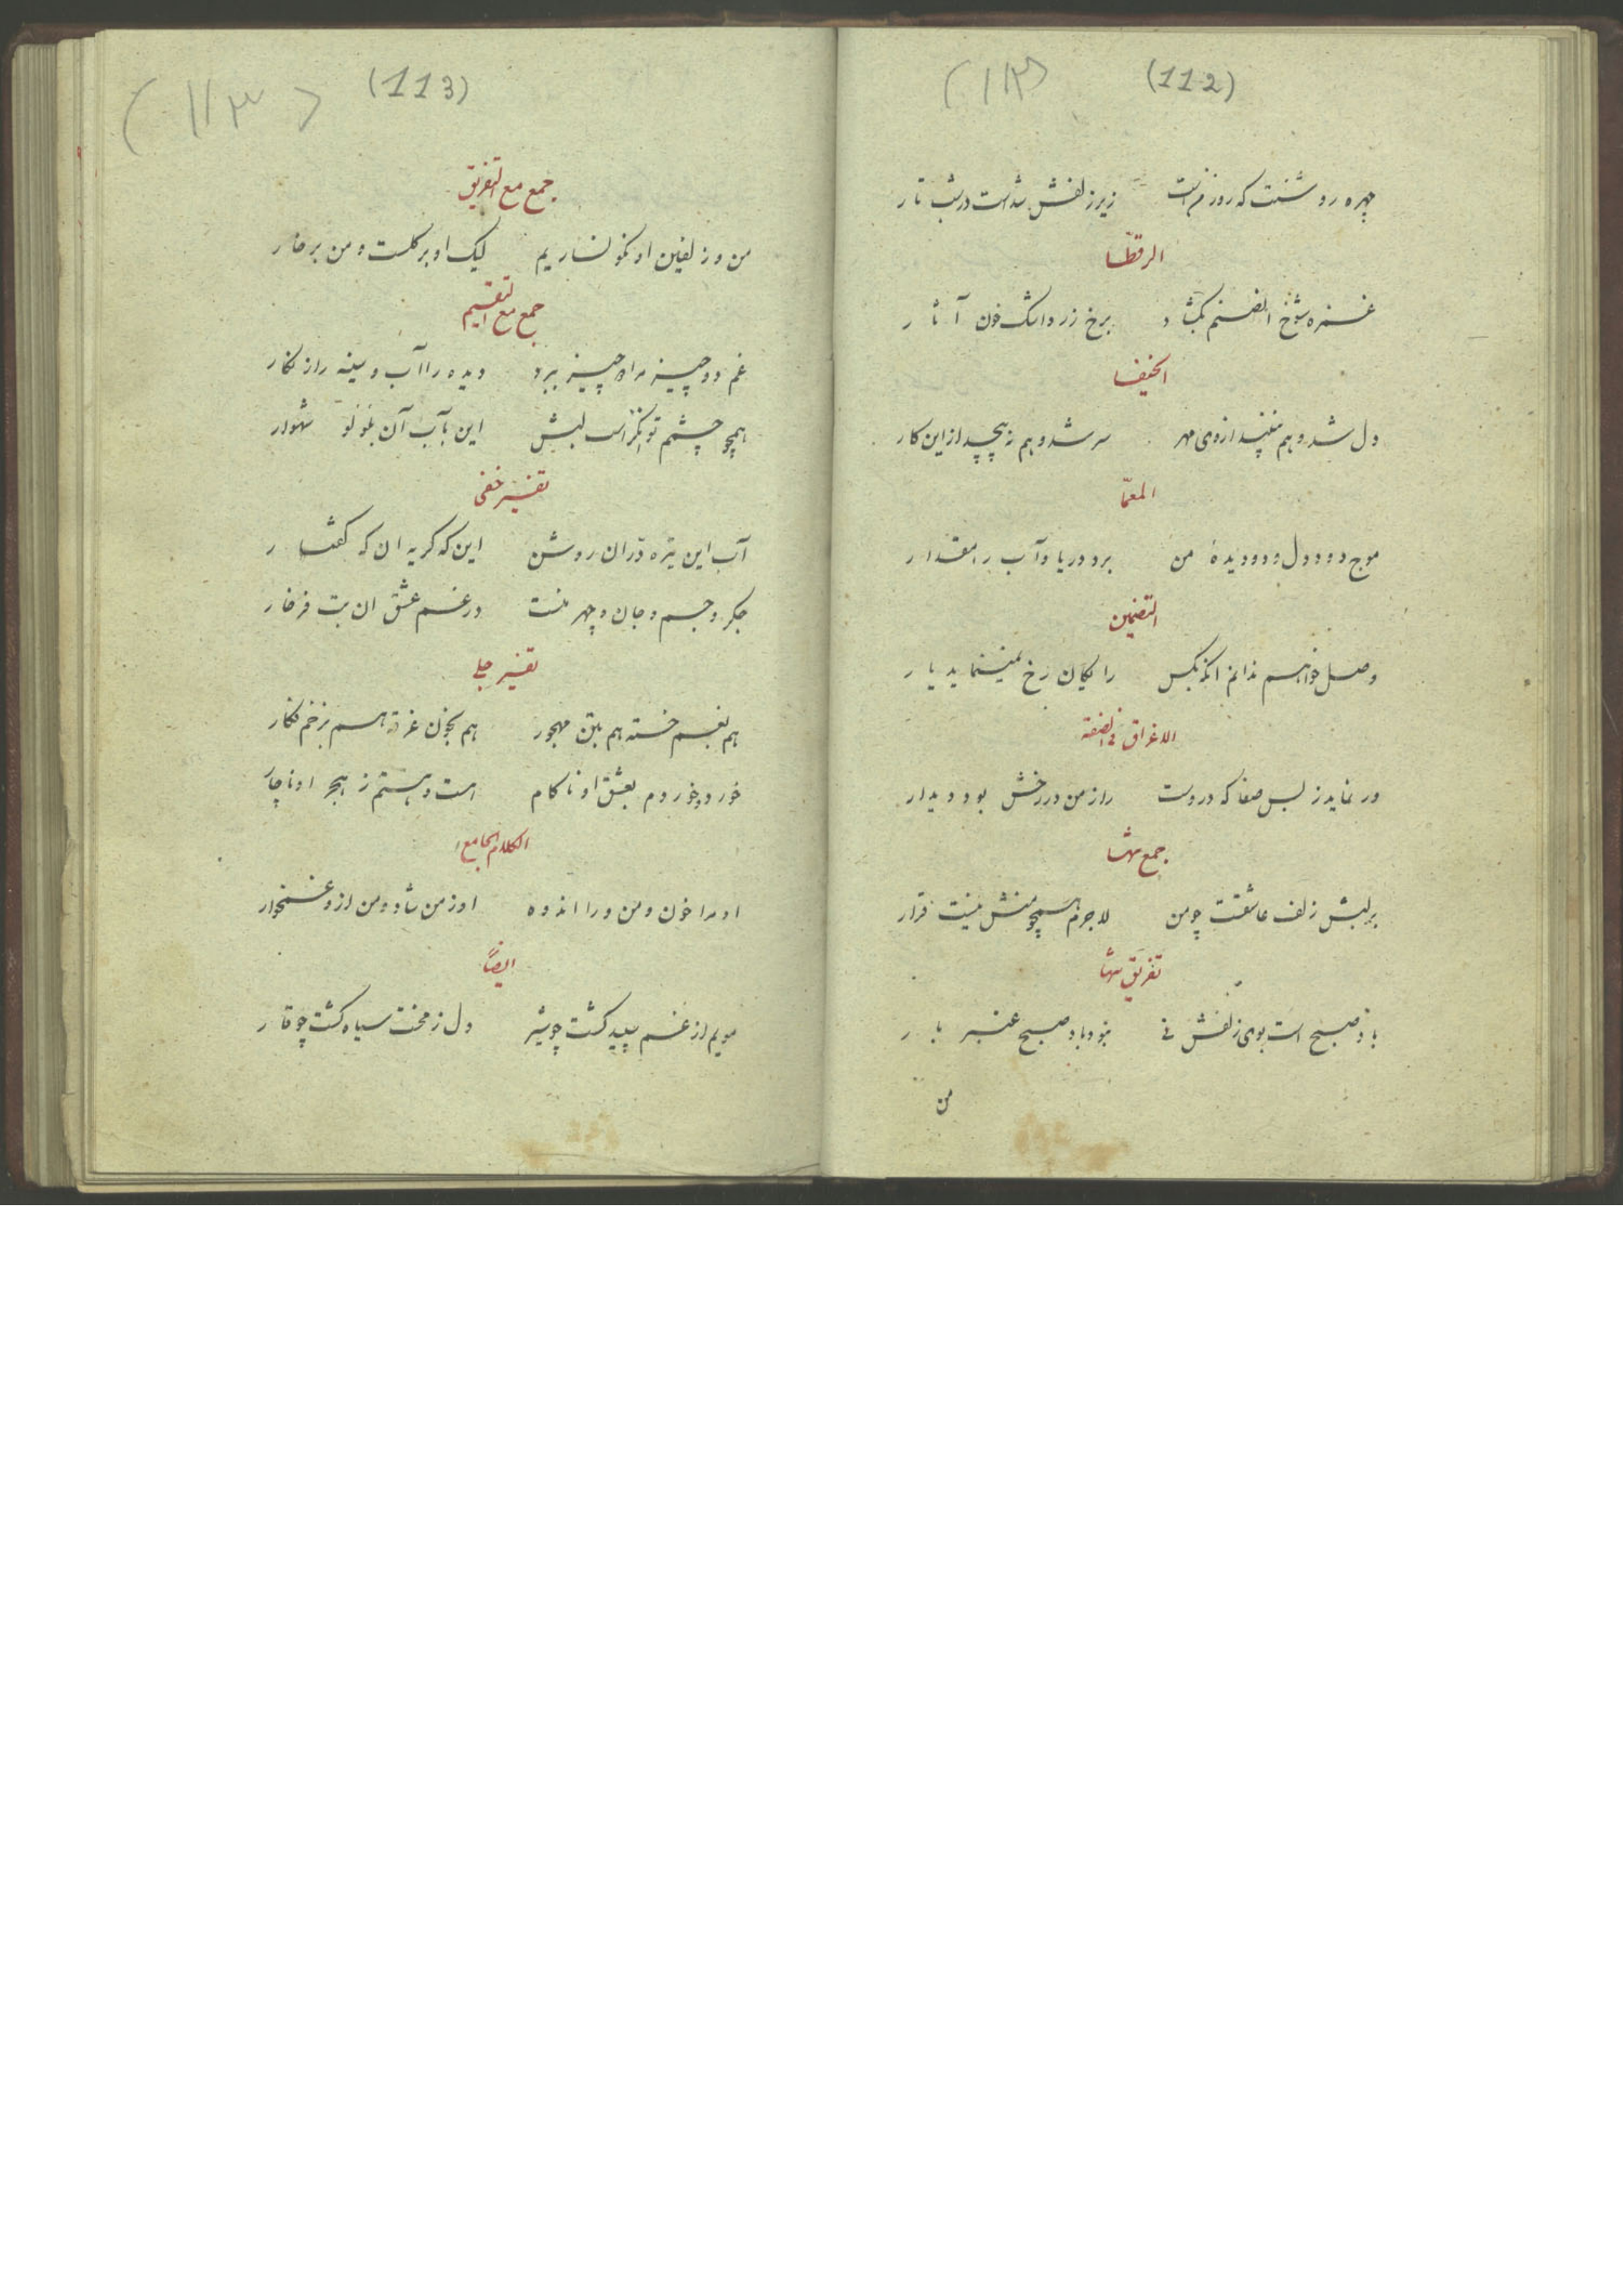 (112) (۱۱۲)
چهره روشنت که روز نم است زیر زلفش شدست درشب تار
الرقطا
غمزه شوخ انصنم بکشاد برخ زرد اشک خون آثار
الخیفا
دل شد و هم نبیند ازوی مهر سر شد و هم نپیچد از این کار
المعما
موج دود دل و دو دیده من برد دریا و آب را مقدار
التضمین
وصل خواهم ندانم انکه بکس رایکان رخ نمینماید یار
الاغراق فی الصفة
ور نماید ز بس صفا که دروست راز من در رخش بود دیدار
جمع تنها
بر لبش زلف عاشقست چو من لاجرم همچو منش نیست قرار
تفریق تنها
باد صبح است بوی زلفش نی نبود باد صبح عنبر بار
من
(113) (۱۱۳)
جمع مع التفریق
من و زلفین او نکونساریم لیک او بر گلست و من بر خار
جمع مع التقسیم
غم دو چیز مرا دو چیز ببرد دیده را آب و سینه را زنکار
همچو چشمم توانگر است لبش این بآب آن بلؤلؤ شهوار
تفسیر خفی
آب این تیره دران روشن این که کریه ان که کفتار
جکر و جسم و جان و چهر منست در غم عشق ان بت فرخار
تفسیر جلی
هم بغم خسته هم بتن مهجور هم بخون غرقه هم بزخم فکار
خورد و خوردم بعشق او ناکام است و هستم ز هجر او ناچار
الکلام الجامع
او مرا خون و من ورا اندوه او ز من شاد و من از و غمخوار
ایضاً
مویم از غم سپید کشت چو شیر دل ز محنت سیاه کشت چو قار